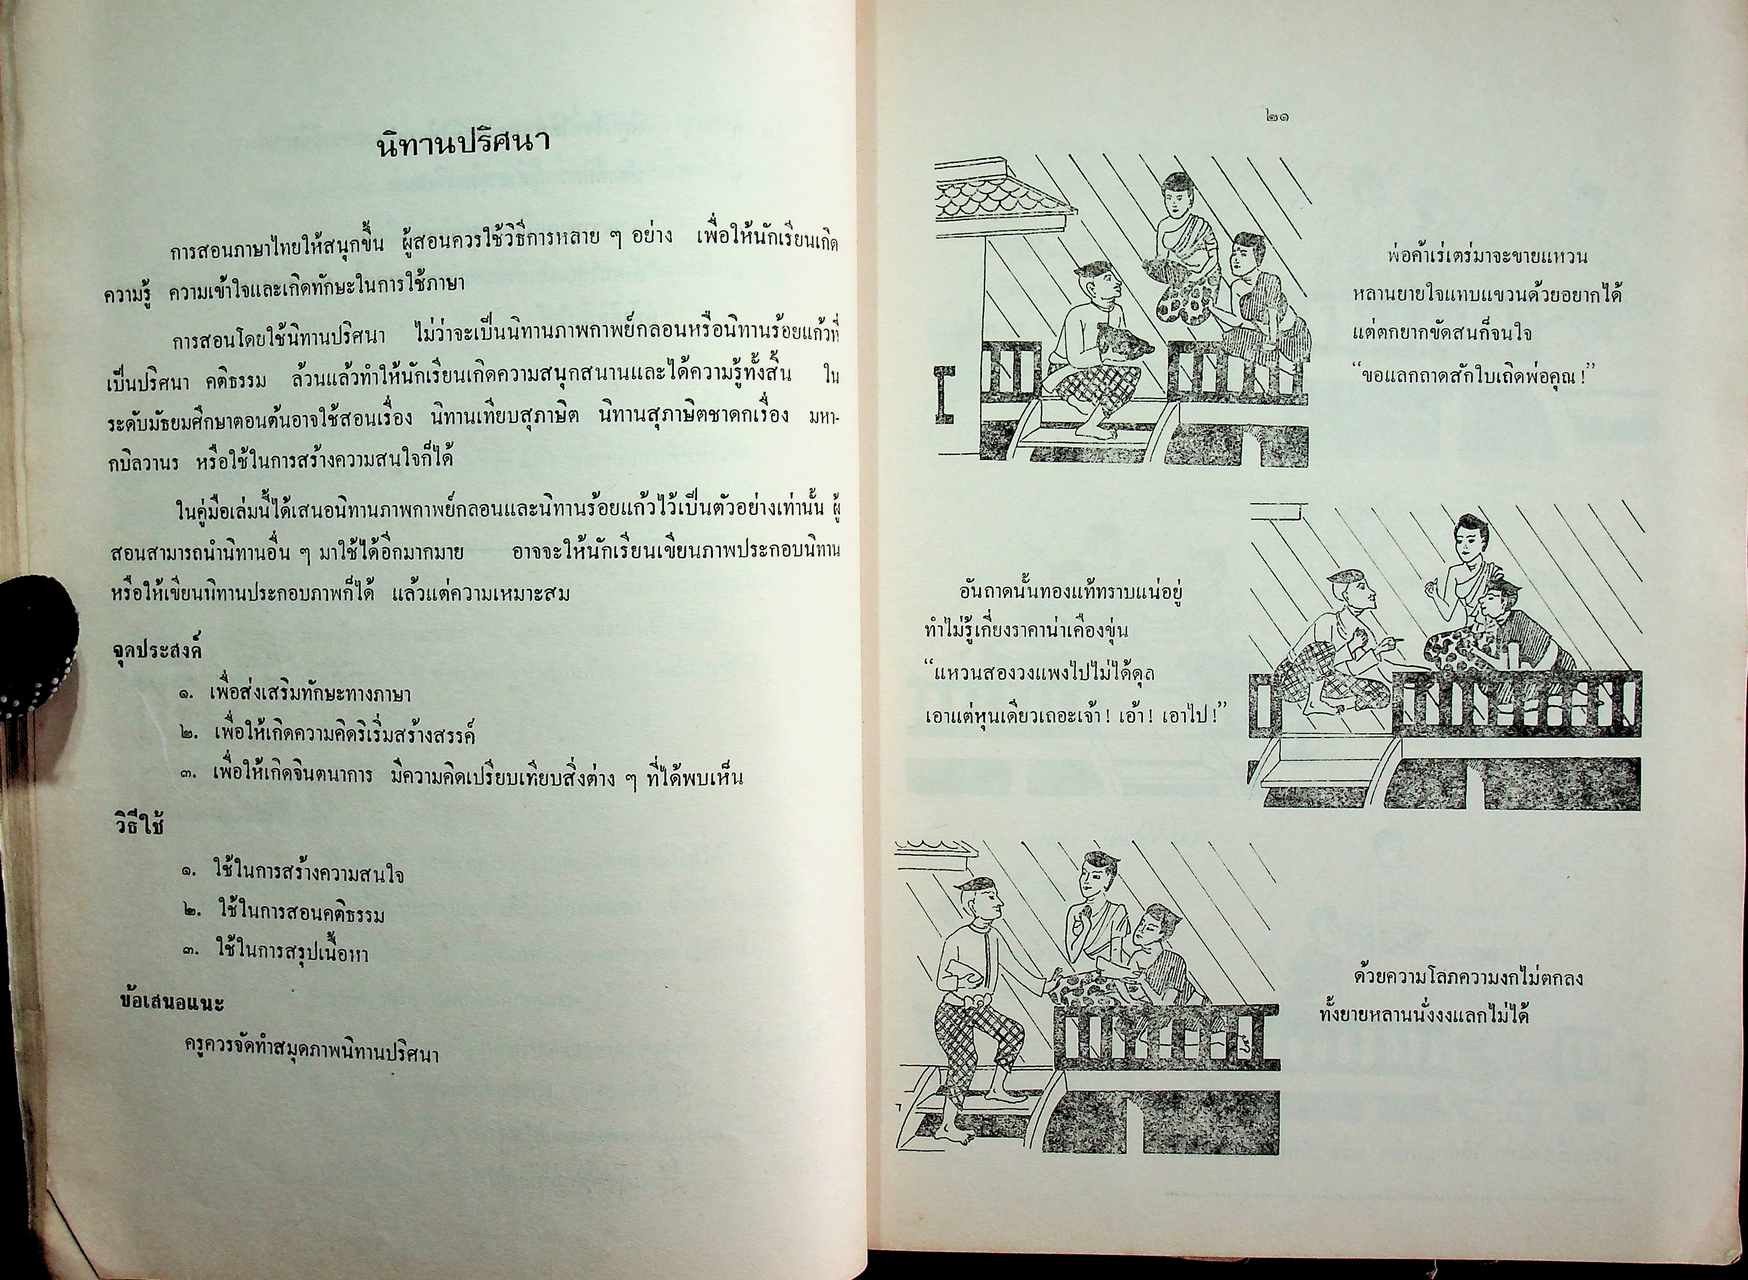 นิทานปริศนา
การสอนภาษาไทยให้สนุกขึ้น ผู้สอนควรใช้วิธีการหลาย ๆ อย่าง เพื่อให้นักเรียนเกิด
ความรู้ ความเข้าใจและเกิดทักษะในการใช้ภาษา
การสอนโดยใช้นิทานปริศนา ไม่ว่าจะเป็นนิทานภาพกาพย์กลอนหรือนิทานร้อยแก้วที่
เป็นปริศนา คติธรรม ล้วนแล้วทำให้นักเรียนเกิดความสนุกสนานและได้ความรู้ทั้งสิ้น ใน
ระดับมัธยมศึกษาตอนต้นอาจใช้สอนเรื่อง นิทานเทียบสุภาษิต นิทานสุภาษิตชาดกเรื่อง มหา-
กบิลวานร หรือใช้ในการสร้างความสนใจก็ได้
ในคู่มือเล่มนี้ได้เสนอนิทานภาพกาพย์กลอนและนิทานร้อยแก้วไว้เป็นตัวอย่างเท่านั้น ผู้
สอนสามารถนำนิทานอื่น ๆ มาใช้ได้อีกมากมาย อาจจะให้นักเรียนเขียนภาพประกอบนิทาน
หรือให้เขียนนิทานประกอบภาพก็ได้ แล้วแต่ความเหมาะสม
จุดประสงค์
๑. เพื่อส่งเสริมทักษะทางภาษา
๒. เพื่อให้เกิดความคิดริเริ่มสร้างสรรค์
๓. เพื่อให้เกิดจินตนาการ มีความคิดเปรียบเทียบสิ่งต่าง ๆ ที่ได้พบเห็น
วิธีใช้
๑. ใช้ในการสร้างความสนใจ
๒. ใช้ในการสอนคติธรรม
๓. ใช้ในการสรุปเนื้อหา
ข้อเสนอแนะ
ครูควรจัดทำสมุดภาพนิทานปริศนา
๒๑
พ่อค้าเร่เตร่มาจะขายแหวน
หลานยายใจแทบแขวนด้วยอยากได้
แต่ตกยากขัดสนก็จนใจ
“ขอแลกถาดสักใบเถิดพ่อคุณ!”
อันถาดนั้นทองแท้ทราบแน่อยู่
ทำไม่รู้เกี่ยงราคาน่าเคืองขุ่น
“แหวนสองวงแพงไปไม่ได้ดุล
เอาแต่หุนเดียวเถอะเจ้า! เอ้า! เอาไป!”
ด้วยความโลภความงกไม่ตกลง
ทั้งยายหลานนั่งงงแลกไม่ได้